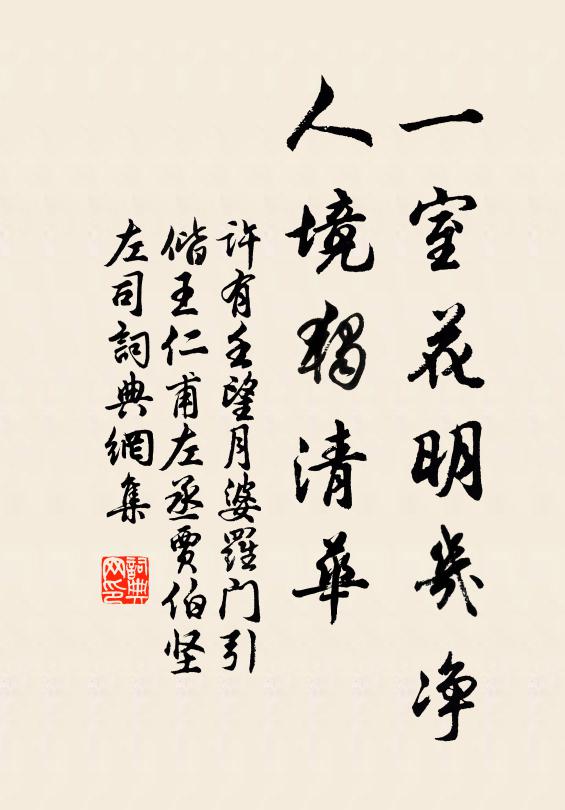 一室花明几净
人境独清华
许有壬望月婆羅门引
偕王仁甫左丞贾伯坚
左司詞典網集
詞典网印